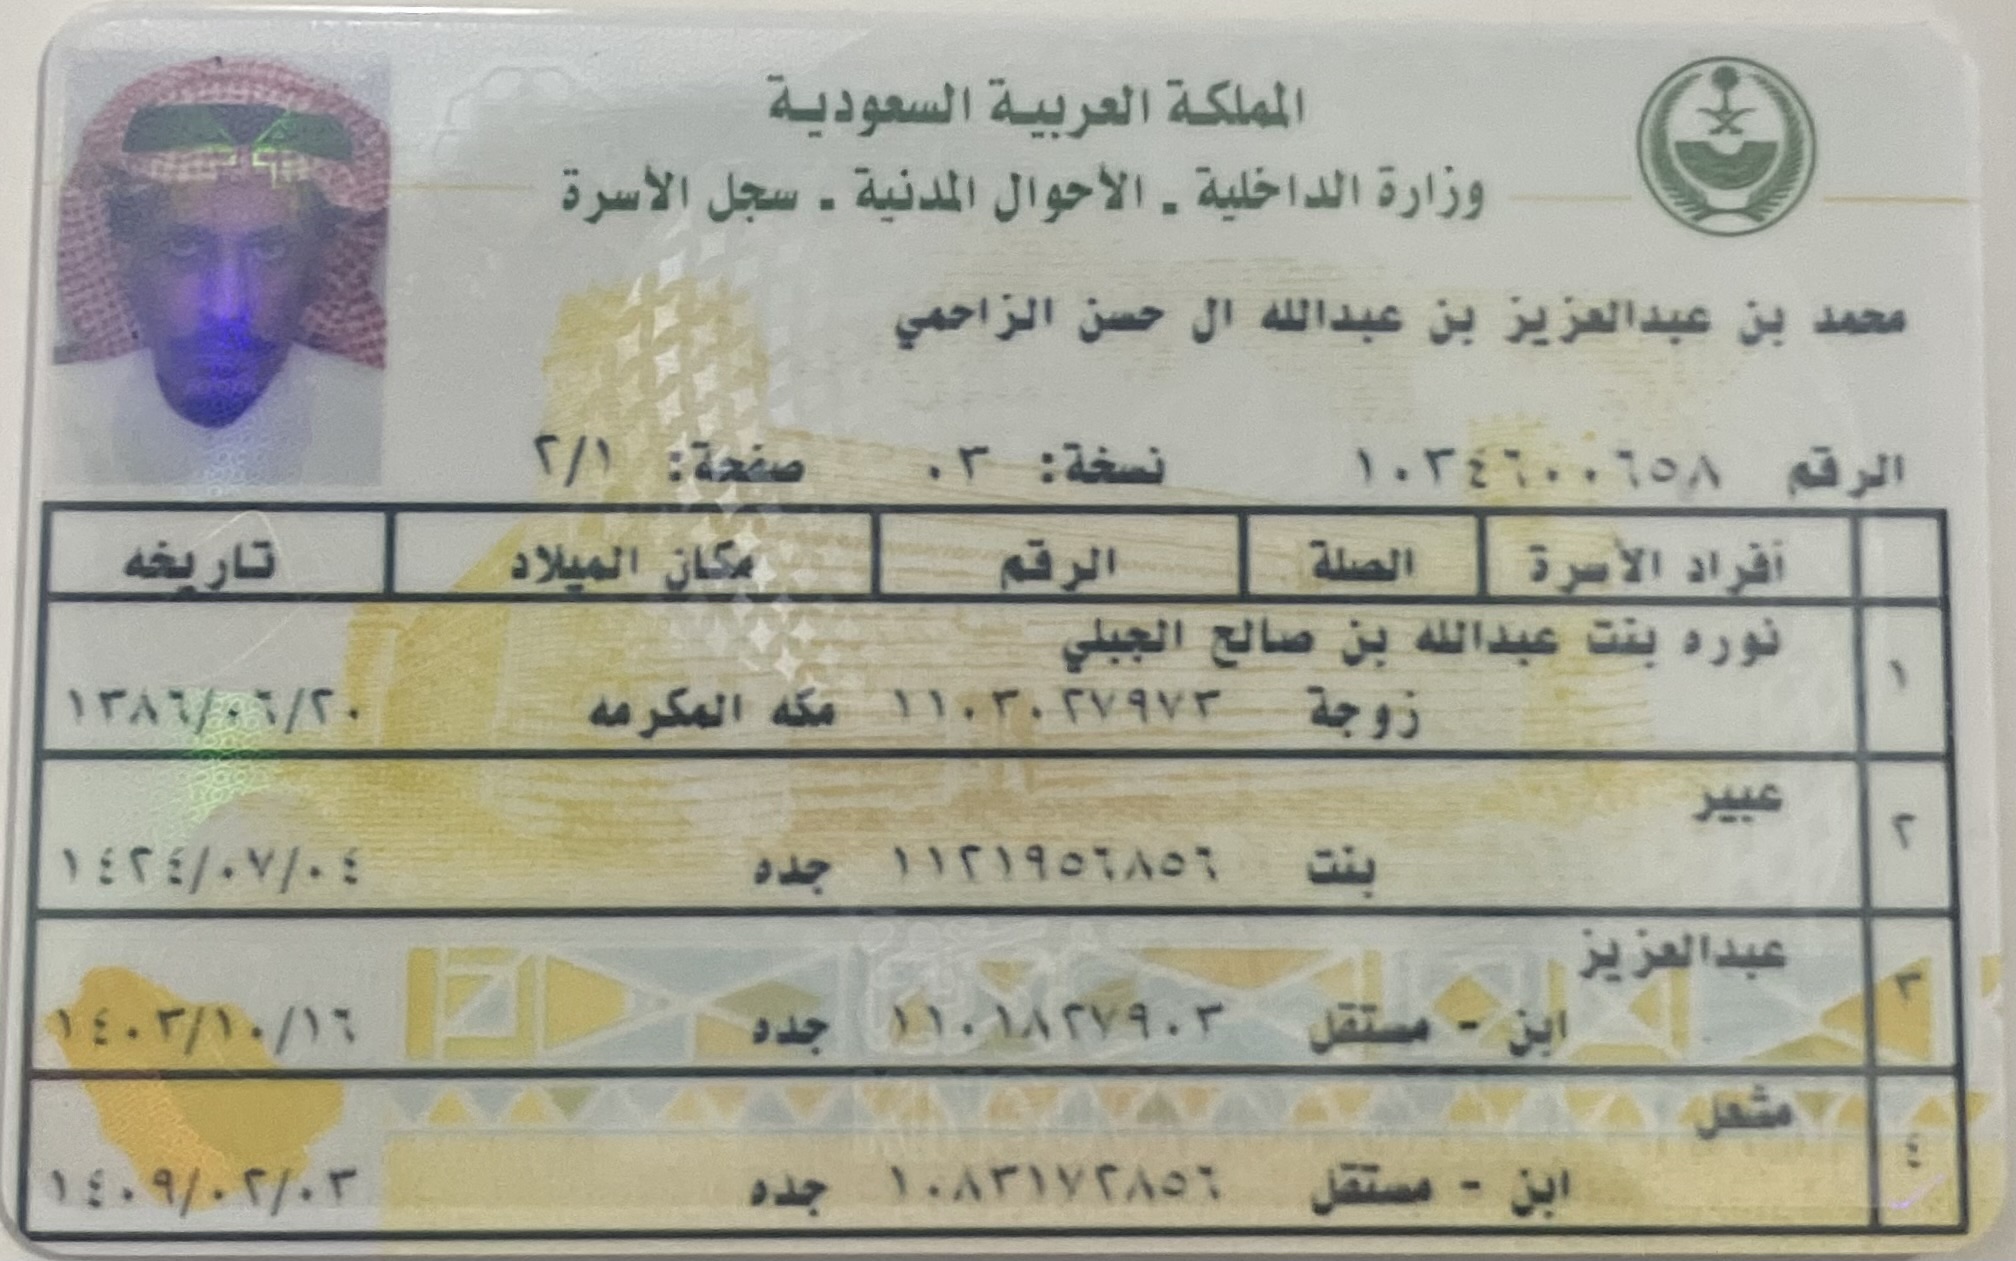 المملكة العربية السعودية
وزارة الداخلية - الأحوال المدنية - سجل الأسرة
محمد بن عبدالعزيز بن عبدالله ال حسن الزاحمي
الرقم ١٠٣٤٦٠٠٦٥٨ نسخة: ٠٣ صفحة: ٢/١
أفراد الأسرة الصلة الرقم مكان الميلاد تاريخه
١ نوره بنت عبدالله بن صالح الجبلي
زوجة ١١٠٣٠٢٧٩٧٣ مكه المكرمه ١٣٨٦/٠٦/٢٠
٢ عبير
بنت ١١٢١٩٥٦٨٥٦ جده ١٤٢٤/٠٧/٠٤
٣ عبدالعزيز
ابن - مستقل ١١٠١٨٢٧٩٠٣ جده ١٤٠٣/١٠/١٦
٤ مشعل
ابن - مستقل ١٠٨٣١٧٢٨٥٦ جده ١٤٠٩/٠٢/٠٣